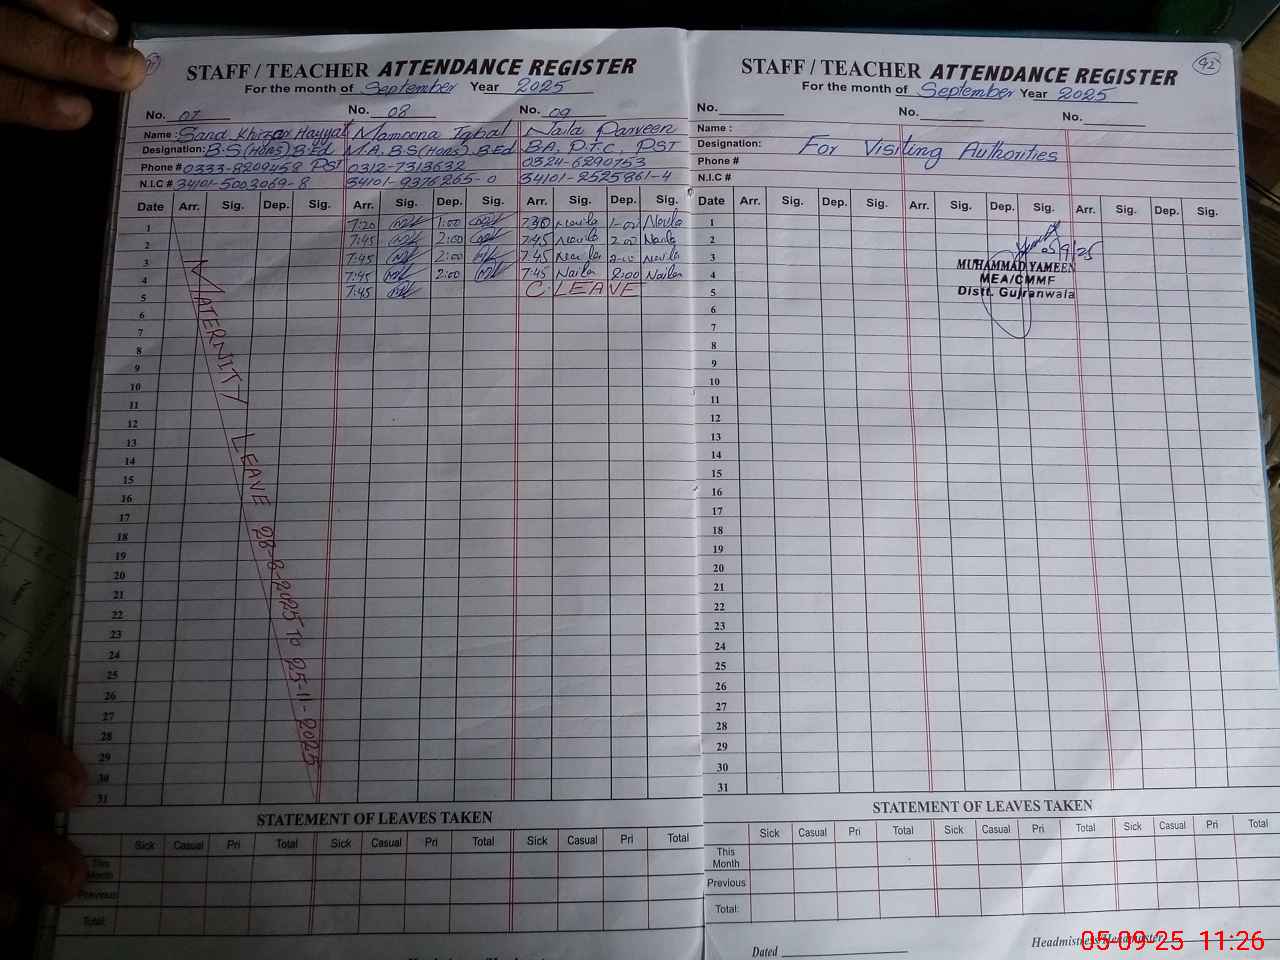 STAFF / TEACHER ATTENDANCE REGISTER
For the month of September Year 2025
No. 07 No. 08 No. 09
Name: Sand Khizar Hayyat Mamoona Iqbal Naila Parveen
Designation: B.S(Hons) B.Ed M.A, B.S(Hons).B.Ed BA, P.T.C, PST
Phone # 0333-8209458 PST 0312-7313632 0324-6290753
N.I.C # 34101-5003069-8 34101-9376265-0 34101-2525861-4
Date Arr. Sig. Dep. Sig. Arr. Sig. Dep. Sig. Arr. Sig. Dep. Sig.
1 7:20 1:00 7:30 Naila 1-00 Naila
2 7:45 2:00 7:45 Naila 2:00 Naila
3 7:45 2:00 7:45 Naila 2:00 Naila
4 7:45 2:00 7:45 Naila 2:00 Naila
5 7:45 C. LEAVE
6
7
8
9
10
11
12
13
14
15
16
17
18
19
20
21
22
23
24
25
26
27
28
29
30
31
MATERNITY LEAVE 28-8-2025 TO 25-11-2025
STATEMENT OF LEAVES TAKEN
Sick Casual Pri Total Sick Casual Pri Total Sick Casual Pri Total
This Month
Previous
Total:
92
STAFF / TEACHER ATTENDANCE REGISTER
For the month of September Year 2025
No. No. No.
Name :
Designation: For Visiting Authorities
Phone #
N.I.C #
Date Arr. Sig. Dep. Sig. Arr. Sig. Dep. Sig. Arr. Sig. Dep. Sig.
1
2
3
4
5
6
7
8
9
10
11
12
13
14
15
16
17
18
19
20
21
22
23
24
25
26
27
28
29
30
31
05/9/25
MUHAMMAD YAMEEN
MEA/CMMF
Distt. Gujranwala
STATEMENT OF LEAVES TAKEN
Sick Casual Pri Total Sick Casual Pri Total Sick Casual Pri Total
This Month
Previous
Total:
Dated
Headmistress/Headmaster
05-09-25 11:26